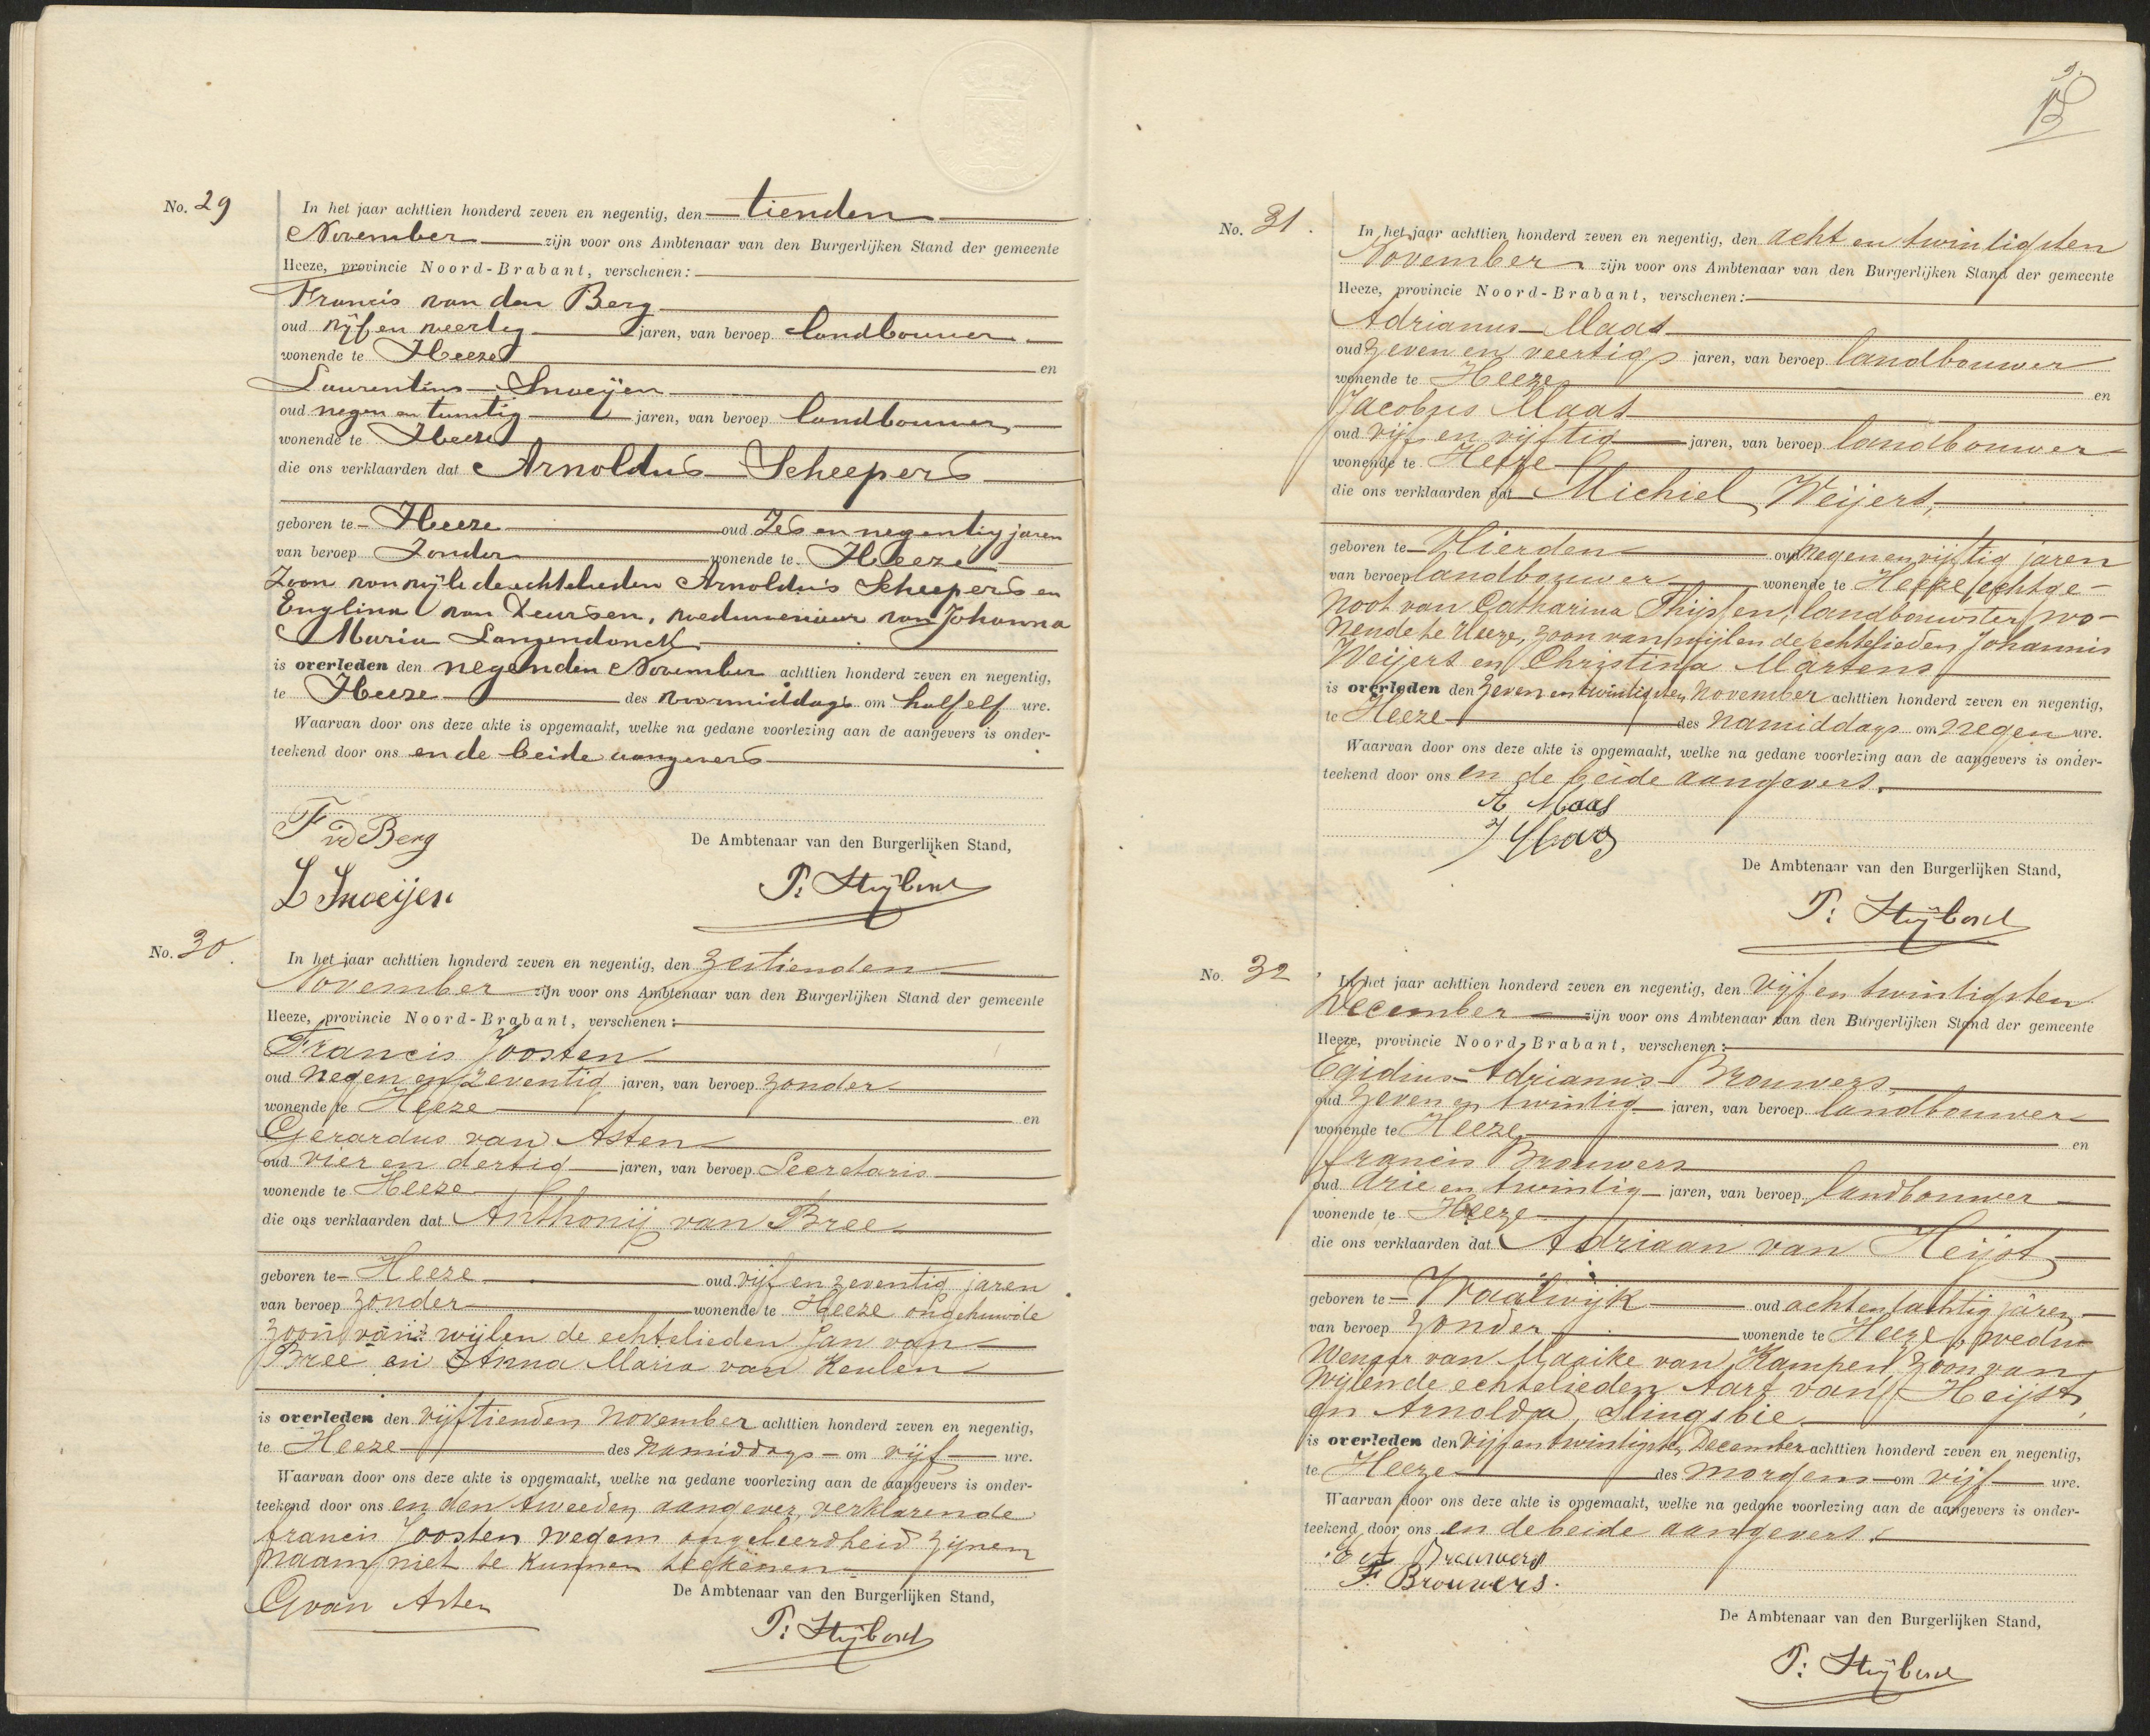 No. 29
In het jaar achttien honderd zeven en negentig, den tienden
November zijn voor ons Ambtenaar van den Burgerlijken Stand der gemeente
Heeze, provincie Noord-Brabant, verschenen:
Francis van den Berg
oud vijf en veertig jaren, van beroep landbouwer
wonende te Heeze en
Laurentius Snoeijen
oud negen en twintig jaren, van beroep landbouwer,
wonende te Heeze
die ons verklaarden dat Arnoldus Scheepers
geboren te Heeze oud Zes en negentig jaren
van beroep Zonder wonende te Heeze
Zoon van wijle de echtelieden Arnoldus Scheepers en
Englina van Deursen, weduwenaar van Johanna
Maria Langendonck
is overleden den negenden November achttien honderd zeven en negentig,
te Heeze des voormiddags om half elf ure.
Waarvan door ons deze akte is opgemaakt, welke na gedane voorlezing aan de aangevers is onder-
teekend door ons en de beide aangevers
F vd Berg
De Ambtenaar van den Burgerlijken Stand,
L Snoeijen
No. 30.
In het jaar achttien honderd zeven en negentig, den zestienden
November zijn voor ons Ambtenaar van den Burgerlijken Stand der gemeente
Heeze, provincie Noord-Brabant, verschenen:
Francis Joosten
oud negen en zeventig jaren, van beroep zonder
wonende te Heeze en
Gerardus van Asten
oud vier en dertig jaren, van beroep Secretaris
wonende te Heeze
die ons verklaarden dat Anthonij van Bree
geboren te Heeze oud vijf en zeventig jaren
van beroep zonder wonende te Heeze ongehuwde
zoon van wijlen de echtelieden Jan van
Bree en Anna Maria van Keulen
is overleden den vijftienden November achttien honderd zeven en negentig,
te Heeze des namiddags om vijf ure.
Waarvan door ons deze akte is opgemaakt, welke na gedane voorlezing aan de aangevers is onder-
teekend door ons en den tweeden aangever, verklarende
Francis Joosten wegens ongeleerdheid zijnen
naam niet te kunnen teekenen
De Ambtenaar van den Burgerlijken Stand,
G van Asten
No. 31.
In het jaar achttien honderd zeven en negentig, den acht en twintigsten
November zijn voor ons Ambtenaar van den Burgerlijken Stand der gemeente
Heeze, provincie Noord-Brabant, verschenen:
Adrianus Maas
oud zeven en veertig jaren, van beroep landbouwer
wonende te Heeze en
Jacobus Maas
oud vijf en vijftig jaren, van beroep landbouwer
wonende te Heeze
die ons verklaarden dat Michiel Weijers,
geboren te Lierden oud negen en vijftig jaren
van beroep landbouwer wonende te Heeze, echtge-
noot van Catharina Thijssen, landbouwster, wo-
nende te Heeze, zoon van wijlen de echtelieden Johannis
Weijers en Christina Martens
is overleden den zeven en twintigsten November achttien honderd zeven en negentig,
te Heeze des namiddags om negen ure.
Waarvan door ons deze akte is opgemaakt, welke na gedane voorlezing aan de aangevers is onder-
teekend door ons en de beide aangevers.
A Maas
J Maas
De Ambtenaar van den Burgerlijken Stand,
No. 32
In het jaar achttien honderd zeven en negentig, den vijf en twintigsten
December zijn voor ons Ambtenaar van den Burgerlijken Stand der gemeente
Heeze, provincie Noord-Brabant, verschenen:
Egidius Adrianus Brouwers,
oud zeven en twintig jaren, van beroep landbouwer
wonende te Heeze en
Francis Brouwers
oud drie en twintig jaren, van beroep landbouwer
wonende te Heeze
die ons verklaarden dat Adriaan van Heijst
geboren te Waalwijk oud acht en tachtig jaren
van beroep zonder wonende te Heeze, wedu-
wenaar van Maaike van Kampen, zoon van
wijlen de echtelieden Aart van Heijst,
en Arnolda, Slingsbie.
is overleden den vijf en twintigsten December achttien honderd zeven en negentig,
te Heeze des morgens om vijf ure.
Waarvan door ons deze akte is opgemaakt, welke na gedane voorlezing aan de aangevers is onder-
teekend door ons en de beide aangevers.
E A Brouwers
F. Brouwers.
De Ambtenaar van den Burgerlijken Stand,